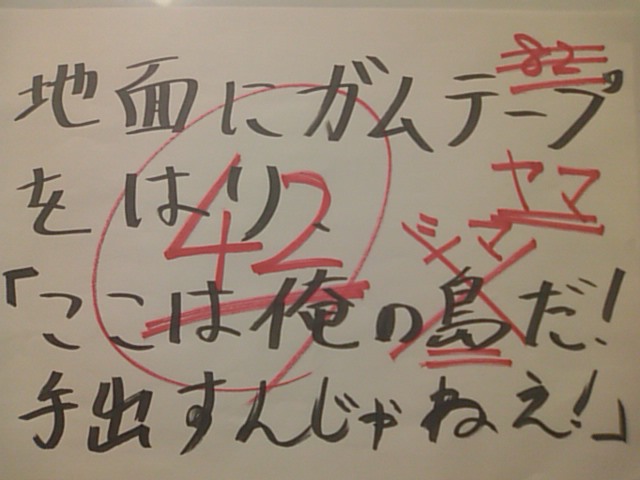 地面にガムテープ
をはり、
「ここは俺の島だ!
手出すんじゃねえ!」
82
42
ヤマ
シマ